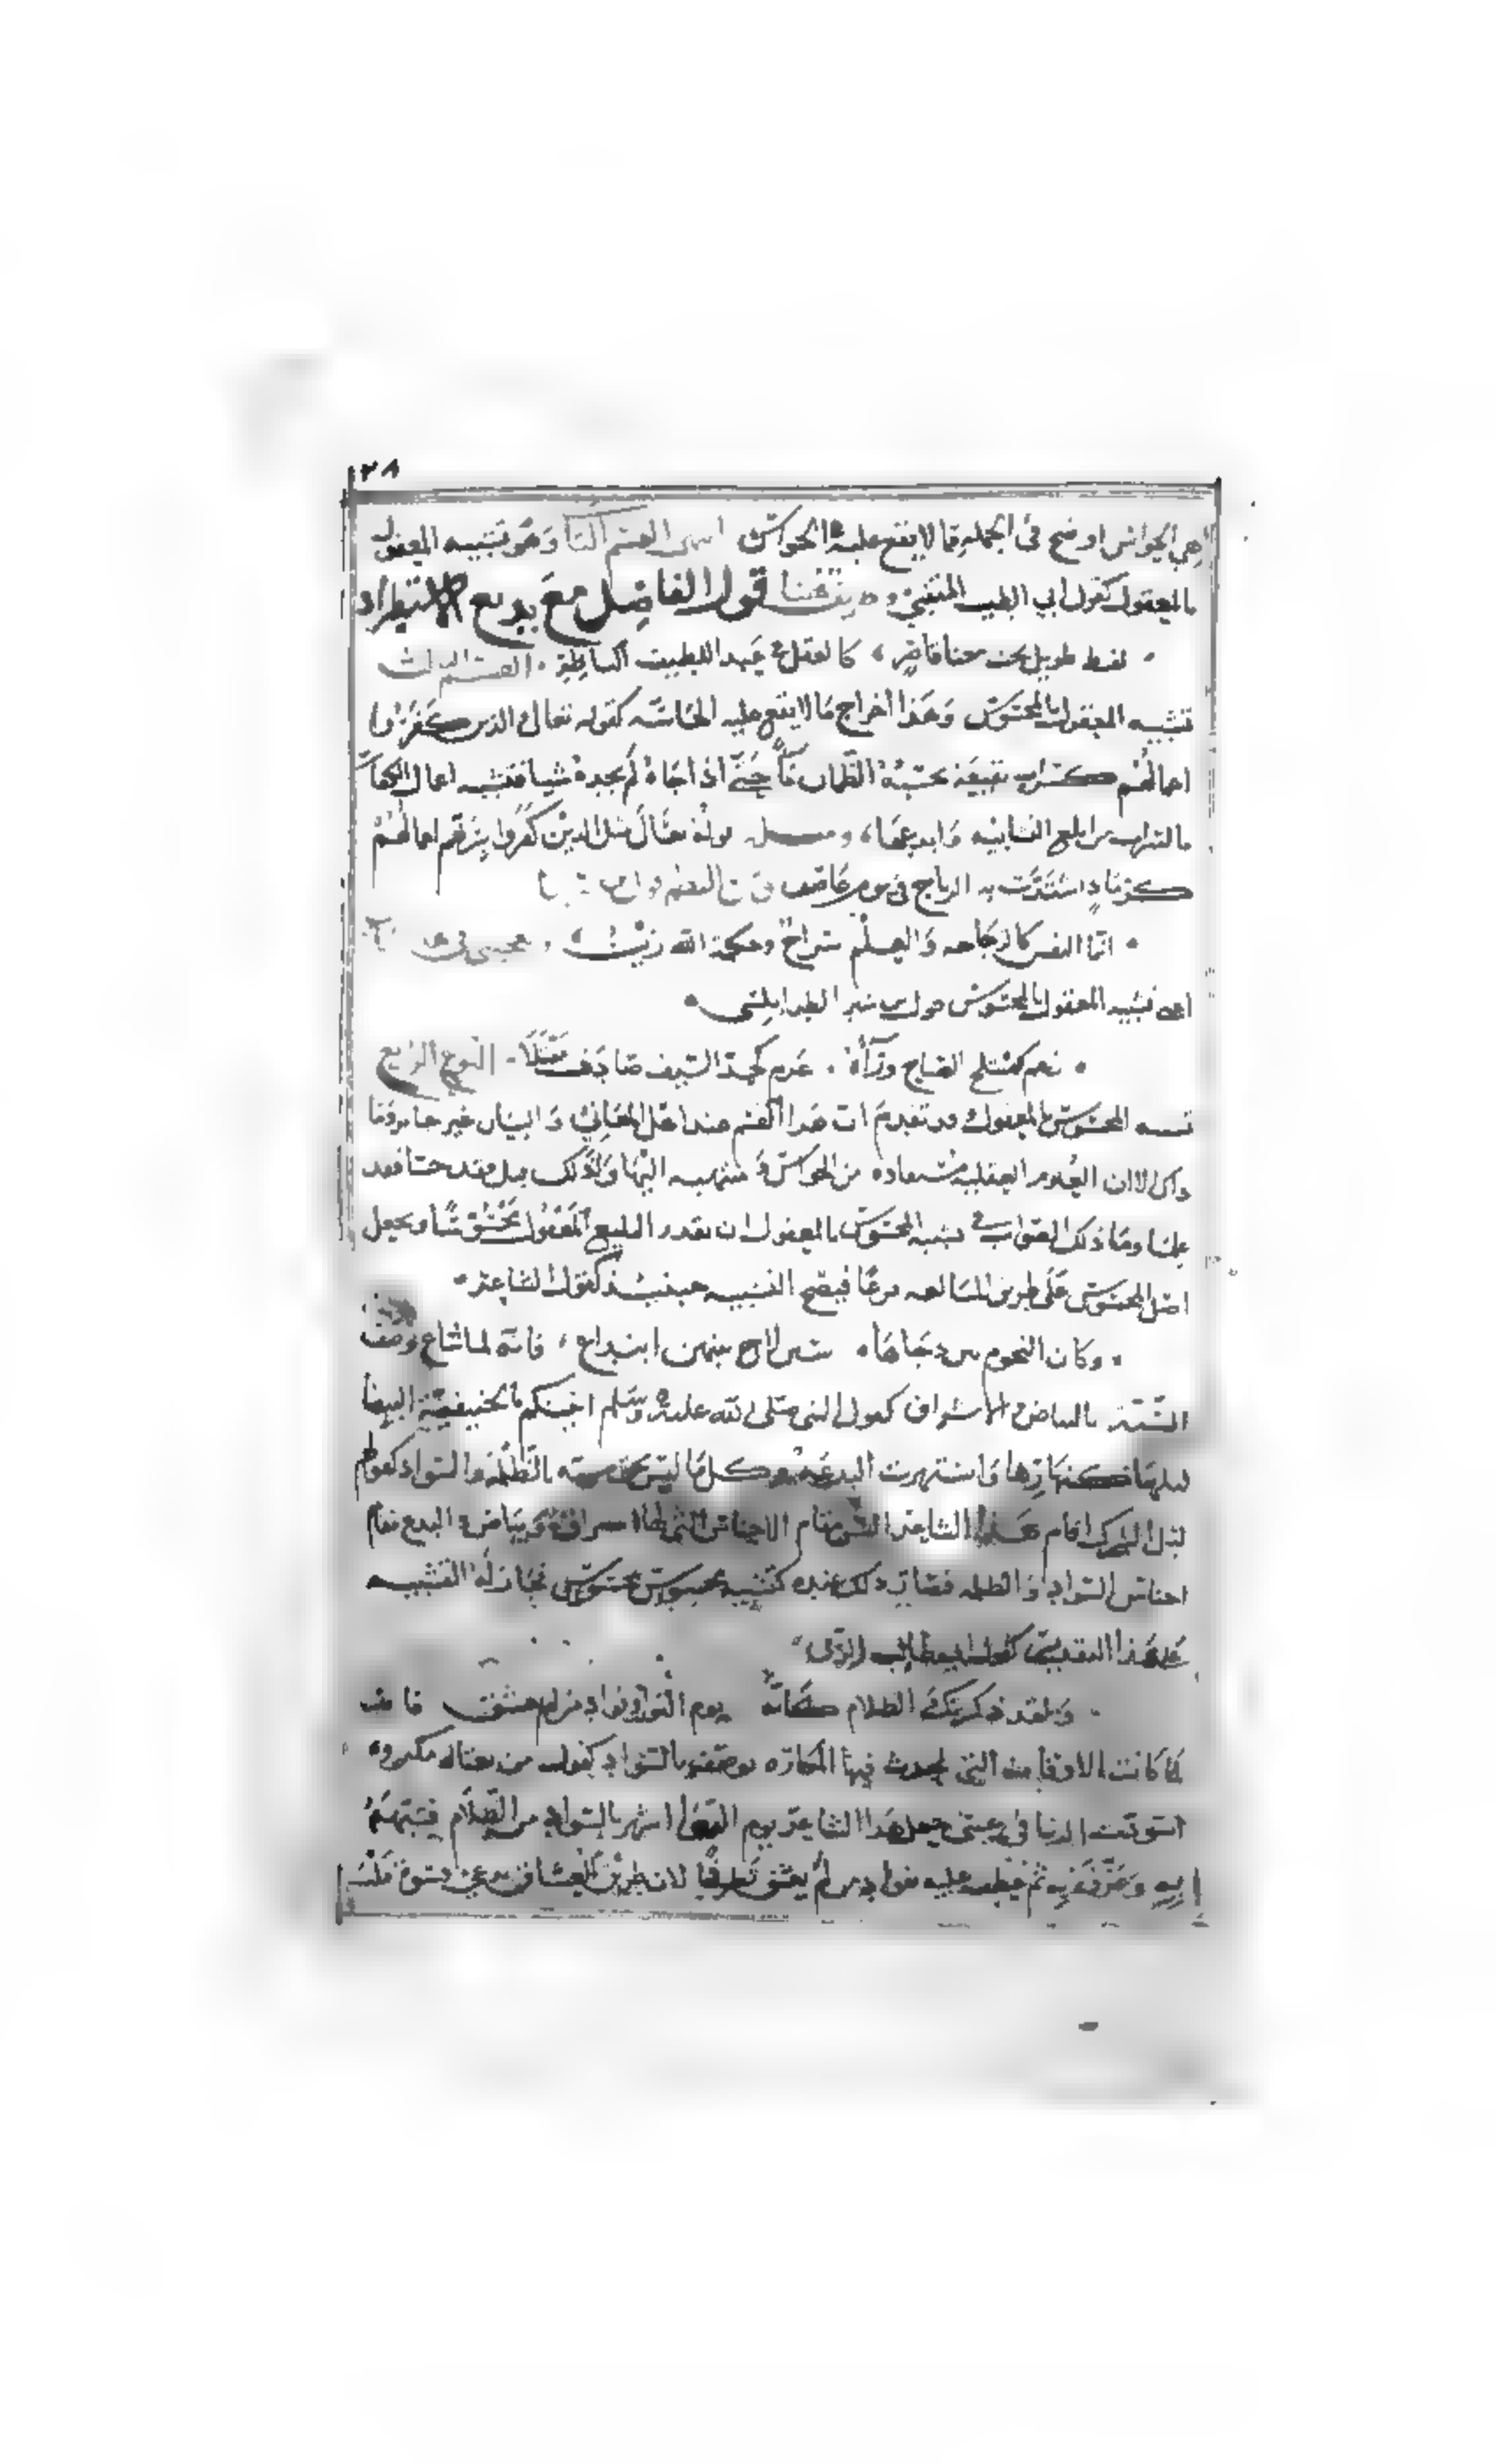 ٢٨
هي الحواس اوضح في الجملة مما لا يقع عليه الحواس انتهى القسم الثا وهو تشبيه المعقول
بالمعقول كقول ابي الطيب المتنبي قول الفاضل مع بديع الاستطراد
لفظ طويل تحت معنا قاصر كالعقل في عبد اللطيف الناظر القسم الثالث
تشبيه المعقول بالمحسوس وهذا اخراج ما لا يقع عليه الحاسه كقوله تعالى الذين كفروا
اعمالهم كسراب بقيعة يحسبه الظمان ماً حتى اذا جاه لم يجده شيا فتشبيه اعمال الكفا
بالسراب من ابلغ التشابيه وابدعها ومــثله قوله تعالى مثل الذين كفروا بربهم اعمالهم
كرماد اشتدت به الرياح في يوم عاصف
انما النفس كالزجاجه والعلم سراج وحكمة الله زيت
اعني تشبيه المعقول بالمحسوس قول بن منير الطرابلسي
زعم كمنبلج الصباح ورآه عزم كحد السيف صادف مقتلا النوع الرابع
تشبيه المحسوس بالمعقول وقد تقدم ان هذا القسم عند اهل المعاني والبيان غير جايز وما
ذاك الا ان العلوم العقليه مستفاده من الحواس ومنتهيه اليها ولذلك قيل من فقد حسا فقد
علما وما ذكر الصواب في تشبيه المحسوس بالمعقول ان يقدر البليغ المعقول محسوسا ويجعل
اصل المحسوس على طريق المبالغه فرعا فيصح التشبيه حينئذ كقول الشاعر
وكان النجوم بين دجاها سنن لاح بينهن ابتداع فانه لما شاع وصف
السنة بالبياض والاشراف كقول النبي صلى الله عليه وسلم اتيتكم بالحنيفية البيضا
ليلها كنهارها واشتهرت البدعة وكل ما ليس بحق بالظلمة والسواد كقولهم
ليل الشرك اقام هذا الشاعر السنن مقام الاجناس التي لها اشراق وبياض والبدع مقام
اجناس السواد والظلمه فصار ذلك عنده كتشبيه محسوس بمحسوس فجاز له التشبيه
على هذا التقدير كقول ابي طالب الرقي
ولقد ذكرتك في الظلام كانه يوم النوى وفواد من لم يعشق فانه
لما كانت الاوقات التي يحدث فيها المكاره توصف بالسواد كقول من يغتاله مكروه
اسودت الدنيا في عيني جعل هذا الشاعر يوم النوى اشهر بالسواد من الظلام فشبهه
به وعرفه به ثم عطف عليه فواد من لم يعشق تظرفا لان ظريف العشاق يدعي قسوة قلب